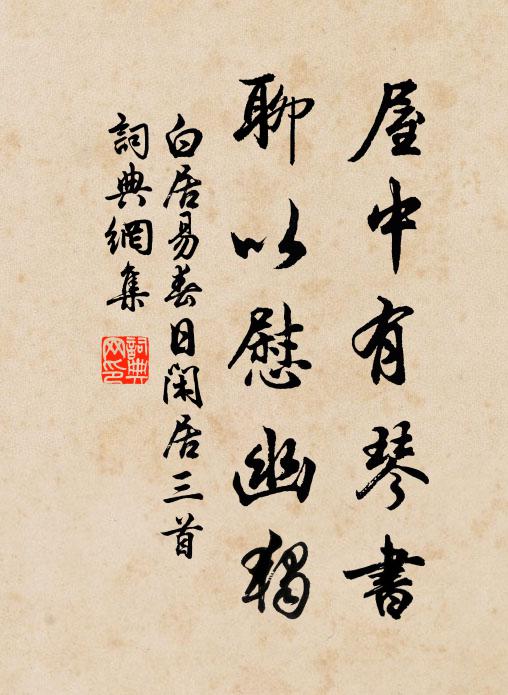 屋中有琴書
聊以慰幽獨
白居易春日閑居三首
詞典網集
詞典網印